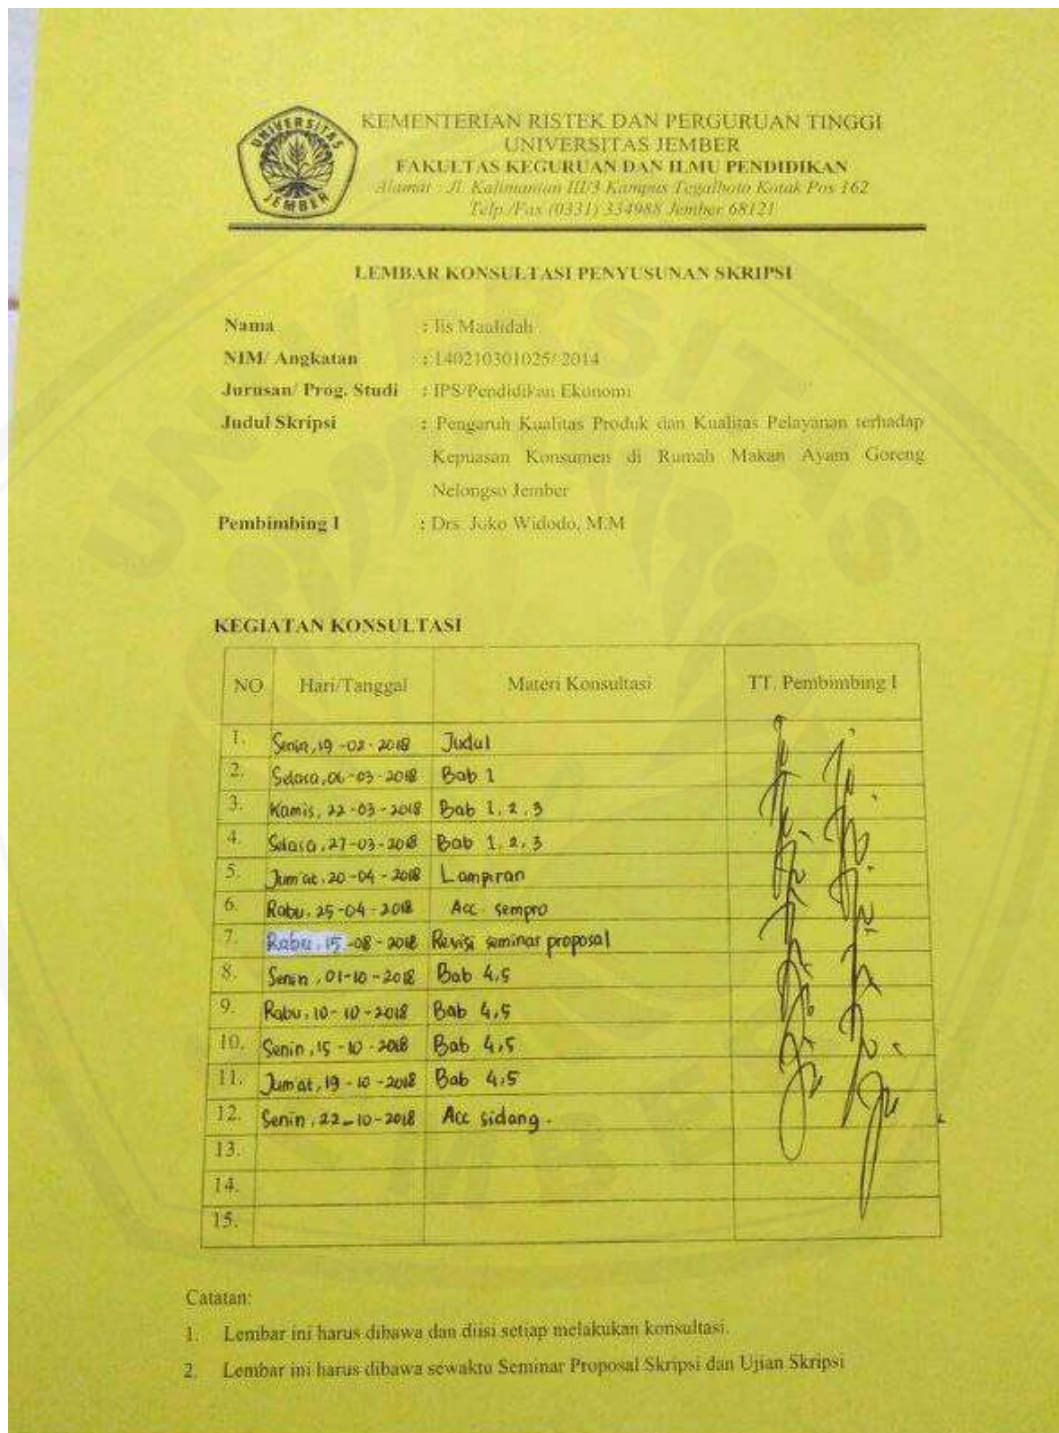 UNIVERSITAS JEMBER
KEMENTERIAN RISTEK DAN PERGURUAN TINGGI
UNIVERSITAS JEMBER
FAKULTAS KEGURUAN DAN ILMU PENDIDIKAN
Alamat : Jl. Kalimantan III/3 Kampus Tegalboto Kotak Pos 162
Telp./Fax (0331) 334988 Jember 68121
LEMBAR KONSULTASI PENYUSUNAN SKRIPSI
Nama : Iis Maulidah
NIM/ Angkatan : 140210301025/ 2014
Jurusan/ Prog. Studi : IPS/Pendidikan Ekonomi
Judul Skripsi : Pengaruh Kualitas Produk dan Kualitas Pelayanan terhadap
Kepuasan Konsumen di Rumah Makan Ayam Goreng
Nelongso Jember
Pembimbing I : Drs. Joko Widodo, M.M
KEGIATAN KONSULTASI
NO Hari/Tanggal Materi Konsultasi TT. Pembimbing I
1. Senin, 19 -02 - 2018 Judul
2. Selasa, 06 -03 - 2018 Bab 1
3. Kamis, 22 -03 - 2018 Bab 1, 2, 3
4. Selasa, 27 -03 - 2018 Bab 1, 2, 3
5. Jum'at, 20 -04 - 2018 Lampiran
6. Rabu, 25 -04 - 2018 Acc sempro
7. Rabu, 15 -08 - 2018 Revisi seminar proposal
8. Senin, 01-10 - 2018 Bab 4,5
9. Rabu, 10- 10 - 2018 Bab 4,5
10. Senin, 15 - 10 - 2018 Bab 4,5
11. Jum'at, 19 - 10 - 2018 Bab 4,5
12. Senin, 22 - 10 - 2018 Acc sidang.
13.
14.
15.
Catatan:
1. Lembar ini harus dibawa dan diisi setiap melakukan konsultasi.
2. Lembar ini harus dibawa sewaktu Seminar Proposal Skripsi dan Ujian Skripsi